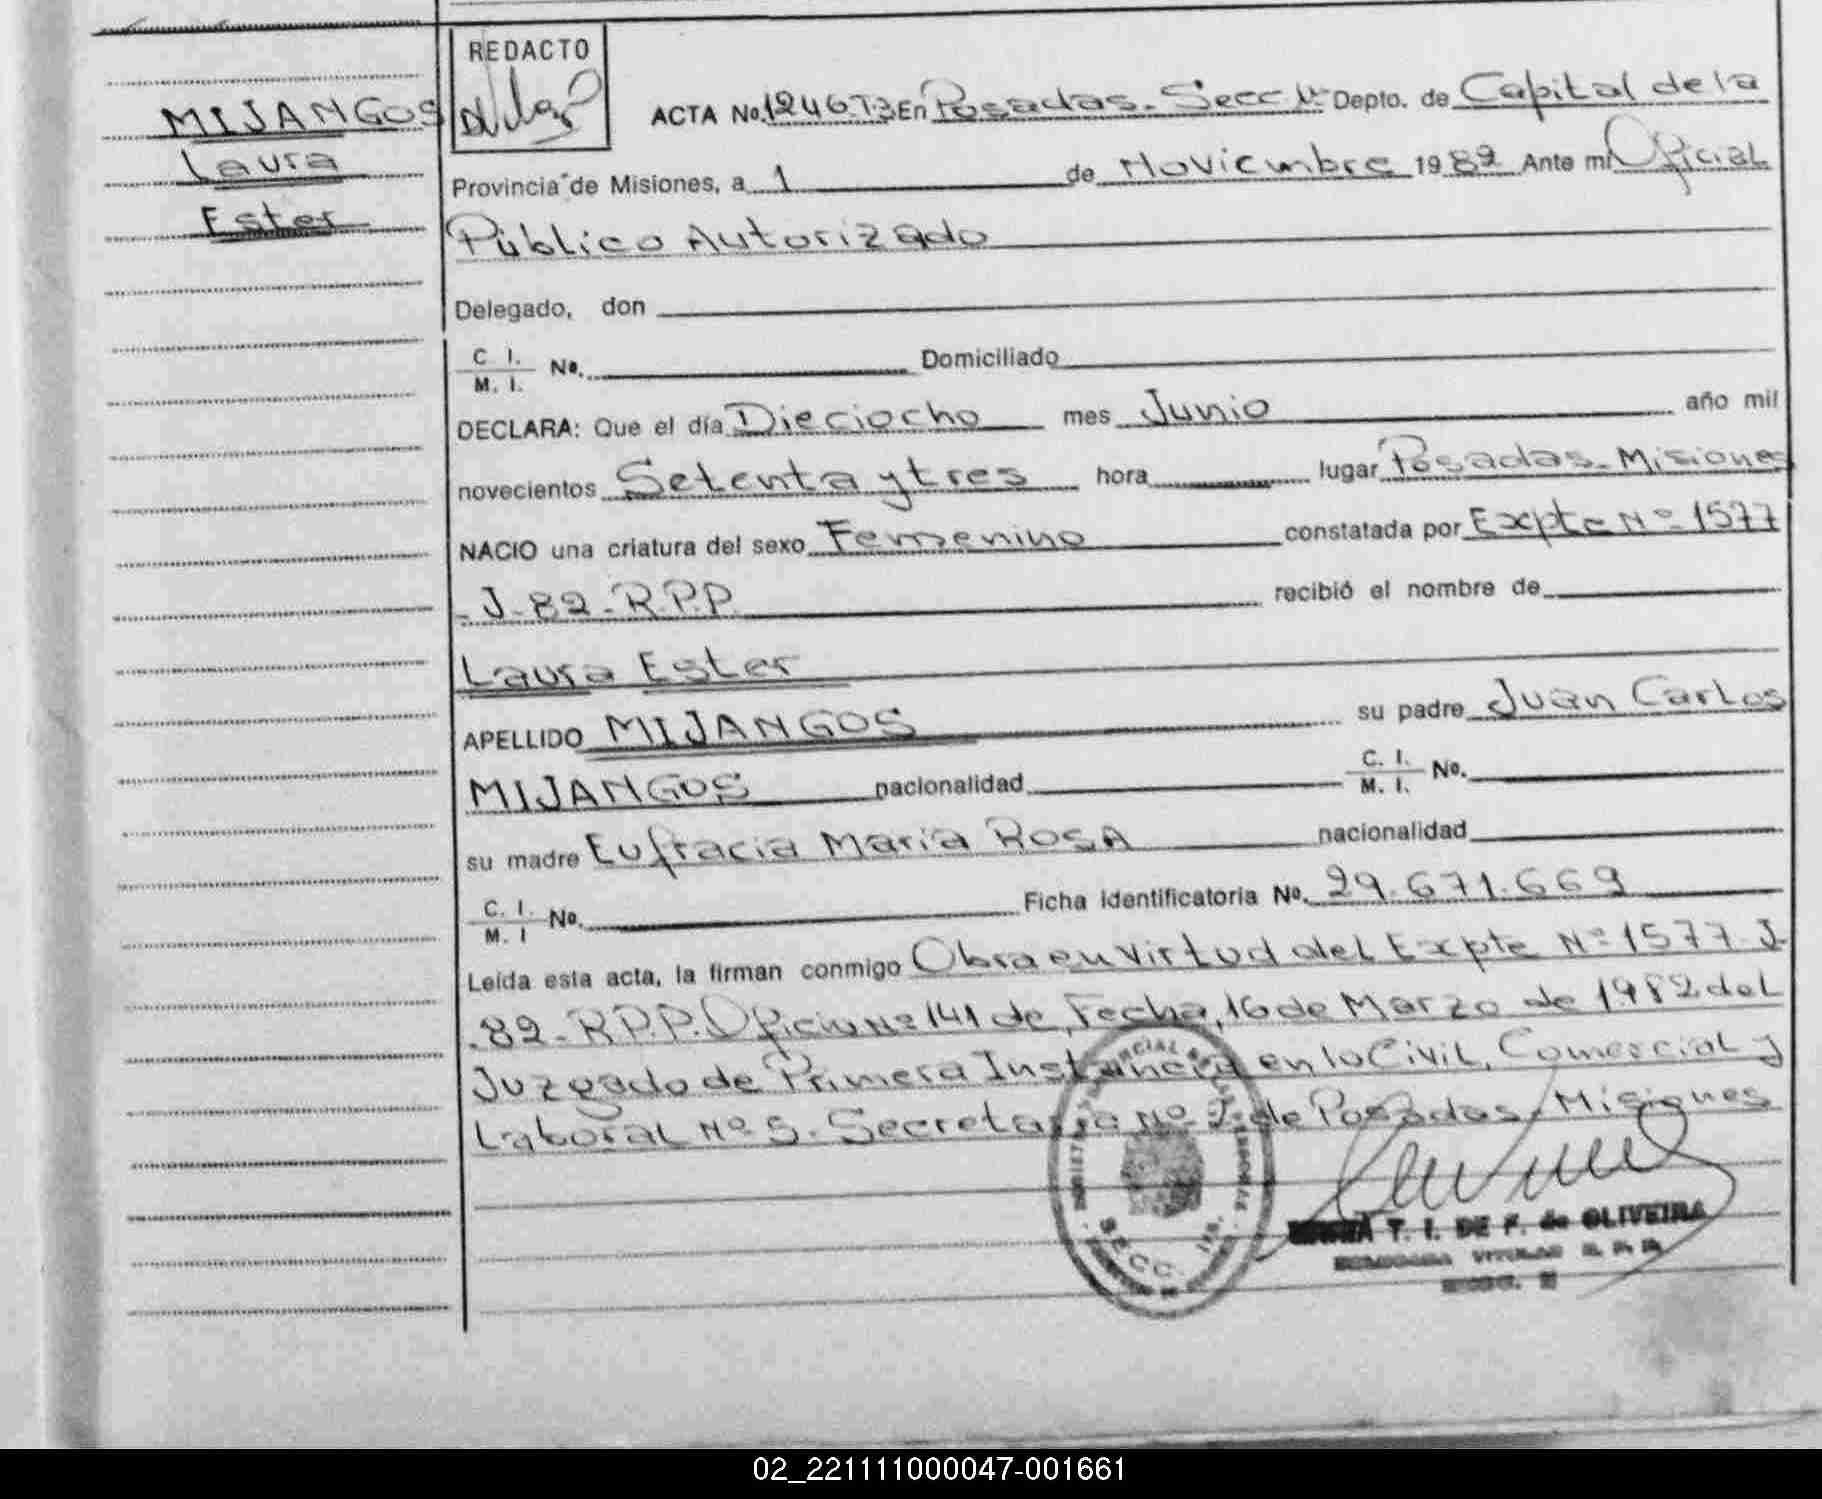 MIJANGOS
Laura
Ester
REDACTO
ACTA No. 1246 T3 En Posadas. Secc 1ª Depto. de Capital de la
Provincia de Misiones, a 1 de Noviembre 1982 Ante mi Oficial
Público Autorizado
Delegado, don
C. I. M. I. No. Domiciliado
DECLARA: Que el día Dieciocho mes Junio año mil
novecientos Setenta y tres hora lugar Posadas. Misiones
NACIO una criatura del sexo Femenino constatada por Expte Nº 1577
- J - 82 - R.P.P. recibió el nombre de
Laura Ester
APELLIDO MIJANGOS su padre Juan Carlos
MIJANGOS nacionalidad C. I. M. I. No.
su madre Eufracia María ROSA nacionalidad
C. I. M. I No. Ficha Identificatoria No. 29.671.669
Leída esta acta, la firman conmigo Obra en virtud del Expte Nº 1577-J-
82-R.P.P. Oficio Nº 141 de Fecha, 16 de Marzo de 1982 del
Juzgado de Primera Instancia en lo Civil, Comercial y
Laboral Nº 5. Secretaria Nº de Posadas. Misiones
SECC.
T. I. DE F. de OLIVEIRA
02_221111000047-001661